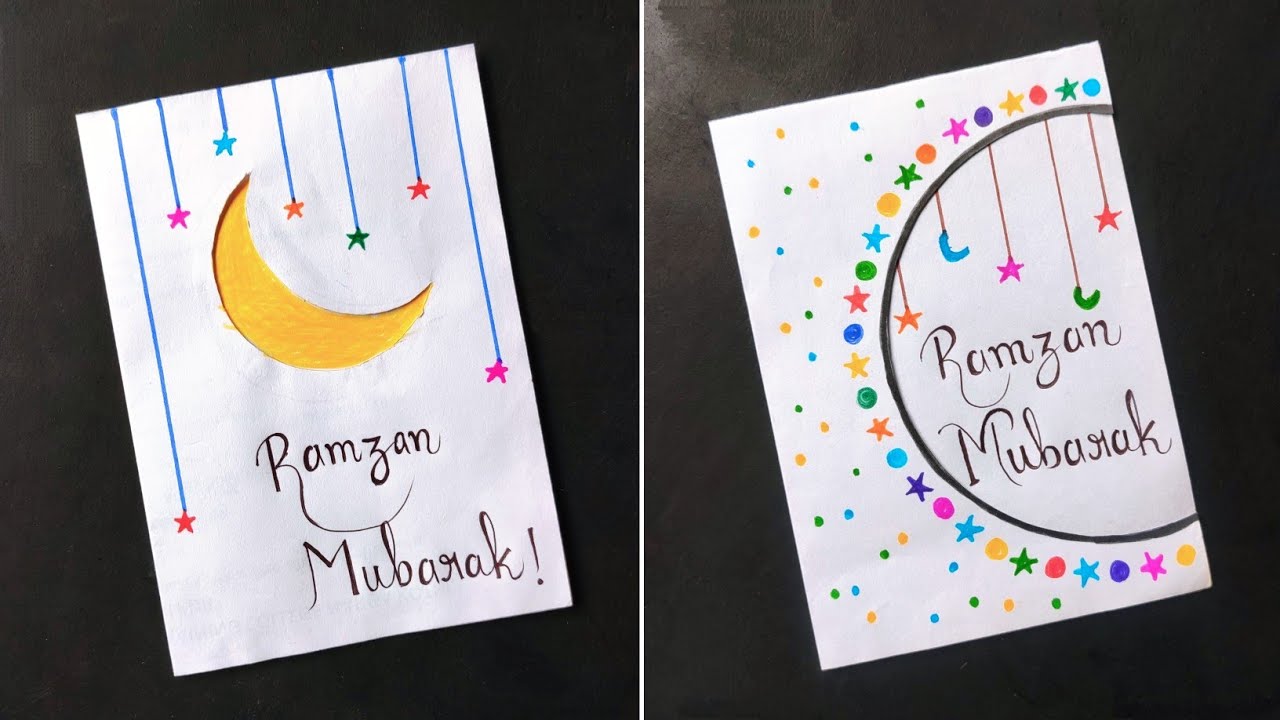 Ramzan
Mubarak!
Ramzan
Mubarak